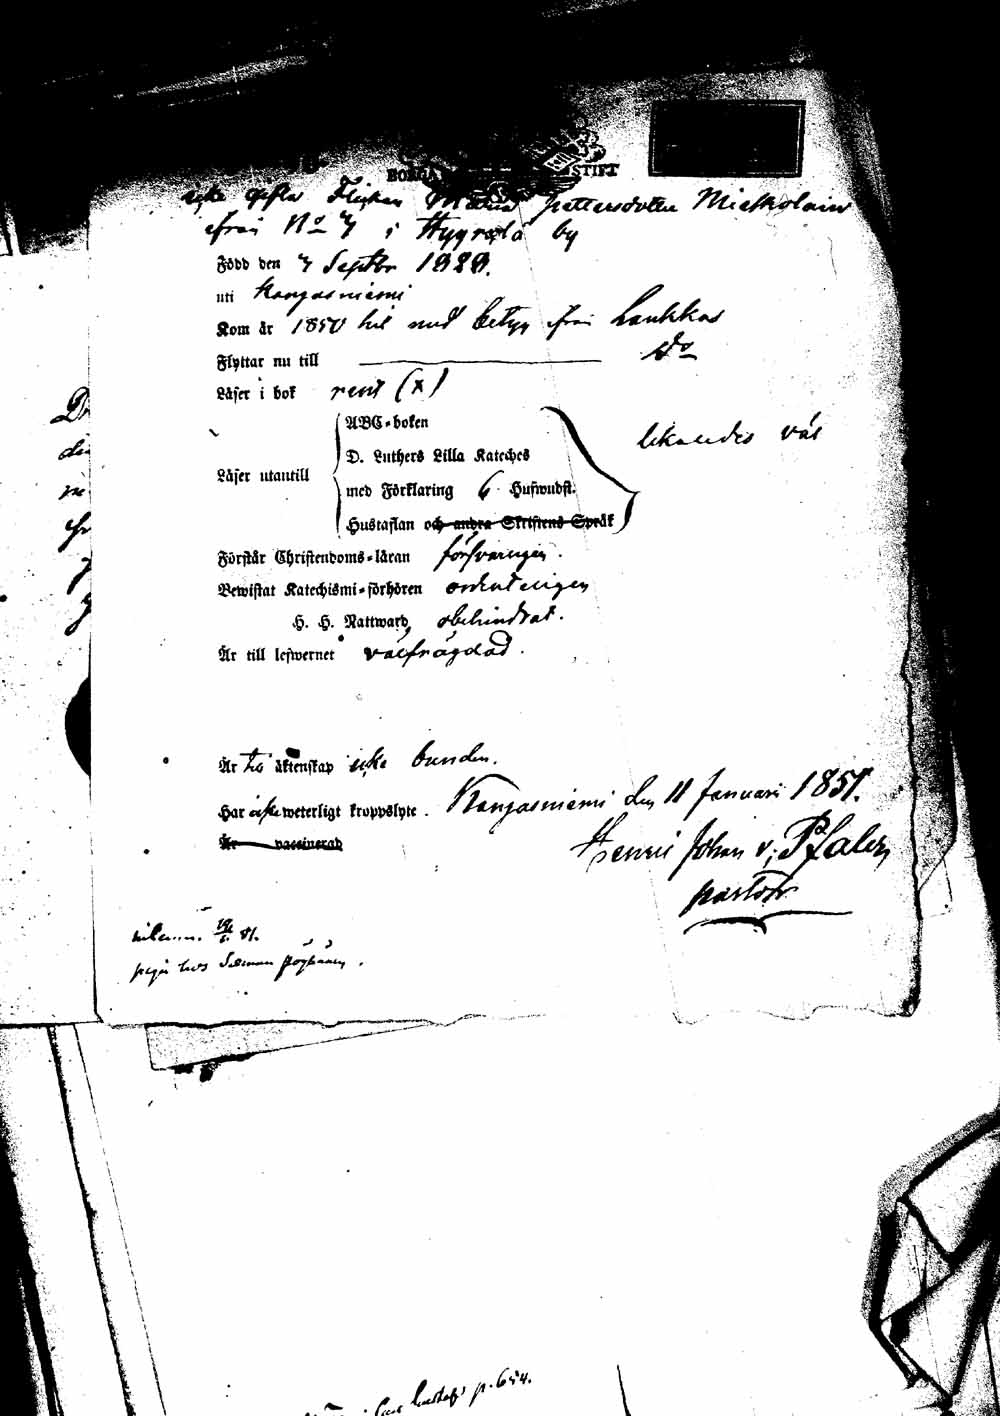 BORGÅ STIFT
Flickan Maria Pettersdotter Mickolain
från No 7 i Hyyrylä by
Född den 7 Septbr 1828.
uti Kangasniemi
Kom år 1850 hit med betyg från Haukkas
Flyttar nu till do
Läser i bok rent (x)
ABC-boken
D. Luthers Lilla Kateches
Läser utantill med Förklaring 6 Hufwudst. likaledes väl
Hustaflan och andra Skriftens Språk
Förstår Christendoms-läran försvarligen.
Bewistat Katechismi-förhören ordentligen
H. H. Nattward obehindrat.
Är till lefwernet välfrägdad.
Är till äktenskap icke bunden.
Har icke weterligt kroppslyte. Kangasniemi den 11 Januari 1851.
Är vaccinerad
Henric Johan v. Pfaler
pastor
51.
p. 654.